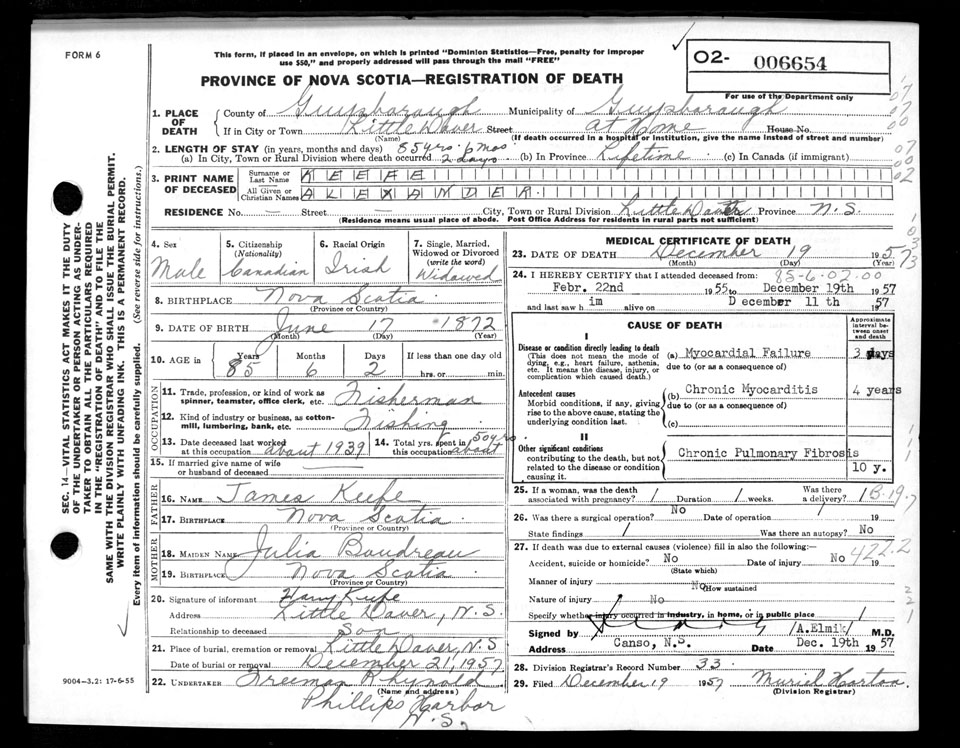 FORM 6
This form, if placed in an envelope, on which is printed "Dominion Statistics—Free, penalty for improper
use $50," and properly addressed will pass through the mail "FREE"
02- 006654
For use of the Department only
PROVINCE OF NOVA SCOTIA—REGISTRATION OF DEATH
SEC. 14—VITAL STATISTICS ACT MAKES IT THE DUTY
OF THE UNDERTAKER OR PERSON ACTING AS UNDER-
TAKER TO OBTAIN ALL THE PARTICULARS REQUIRED
IN THE "REGISTRATION OF DEATH" AND TO FILE THE
SAME WITH THE DIVISION REGISTRAR WHO SHALL ISSUE THE BURIAL PERMIT.
WRITE PLAINLY WITH UNFADING INK. THIS IS A PERMANENT RECORD.
Every item of information should be carefully supplied. (See reverse side for instructions.)
1. PLACE OF DEATH County of Guysborough Municipality of Guysborough
If in City or Town Little Dover Street at Home House No.
(Name) (If death occurred in a hospital or institution, give the name instead of street and number)
2. LENGTH OF STAY (in years, months and days) 85 yrs. 6 mos
(a) In City, Town or Rural Division where death occurred 2 days (b) In Province Lifetime (c) In Canada (if immigrant)
3. PRINT NAME OF DECEASED Surname or Last Name KEEFE
All Given or Christian Names ALEXANDER.
RESIDENCE No. — Street — City, Town or Rural Division Little Dover Province N.S.
(Residence means usual place of abode. Post Office Address for residents in rural parts not sufficient)
4. Sex Male
5. Citizenship (Nationality) Canadian
6. Racial Origin Irish
7. Single, Married, Widowed or Divorced (write the word) Widowed
8. BIRTHPLACE Nova Scotia
(Province or Country)
9. DATE OF BIRTH June 17 1872
(Month) (Day) (Year)
10. AGE in Years 85 Months 6 Days 2 If less than one day old hrs. or min.
OCCUPATION
11. Trade, profession, or kind of work as spinner, teamster, office clerk, etc. Fisherman
12. Kind of industry or business, as cotton-mill, lumbering, bank, etc. Fishing
13. Date deceased last worked at this occupation about 1939
14. Total yrs. spent in this occupation about 50 yrs.
15. If married give name of wife or husband of deceased —
FATHER
16. NAME James Keefe
17. BIRTHPLACE Nova Scotia
(Province or Country)
MOTHER
18. MAIDEN NAME Julia Boudreau
19. BIRTHPLACE Nova Scotia
(Province or Country)
20. Signature of informant Harry Keefe
Address Little Dover, N.S.
Relationship to deceased Son
21. Place of burial, cremation or removal Little Dover, N.S
Date of burial or removal December 21, 1957
22. UNDERTAKER Freeman Rhynold
(Name and address)
Phillips Harbor
N.S.
9004-3.2: 17-6-55
MEDICAL CERTIFICATE OF DEATH
23. DATE OF DEATH December 19 1957
(Month) (Day) (Year)
85-6-02.00
24. I HEREBY CERTIFY that I attended deceased from:
Febr. 22nd 1955 to December 19th 1957
and last saw h im alive on December 11 th 1957
CAUSE OF DEATH
Approximate interval between onset and death
I
Disease or condition directly leading to death
(This does not mean the mode of dying, e.g., heart failure, asthenia, etc. It means the disease, injury, or complication which caused death.)
(a) Myocardial Failure 3 days
due to (or as a consequence of)
Antecedent causes
Morbid conditions, if any, giving rise to the above cause, stating the underlying condition last.
(b) Chronic Myocarditis 4 years
due to (or as a consequence of)
(c)
II
Other significant conditions
contributing to the death, but not related to the disease or condition causing it.
Chronic Pulmonary Fibrosis
10 y.
25. If a woman, was the death associated with pregnancy? / Duration / weeks. Was there a delivery? /
26. Was there a surgical operation? No Date of operation / 19
State findings / Was there an autopsy? No
27. If death was due to external causes (violence) fill in also the following:—
422.2
Accident, suicide or homicide? No Date of injury No 19
(State which)
Manner of injury No
(How sustained
Nature of injury No
Specify whether injury occurred in industry, in home, or in public place /
Signed by /A.Elmik/ M.D.
Address Canso, N.S. Date Dec. 19th 1957
28. Division Registrar's Record Number 33.
29. Filed December 19 1957 Muriel Horton
(Division Registrar)